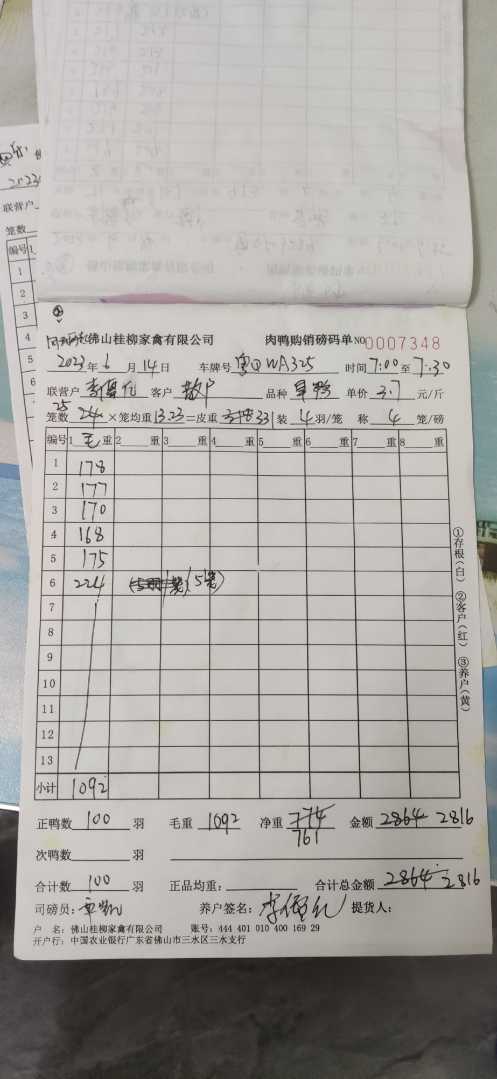 佛山桂柳家禽有限公司 肉鸭购销磅码单 NO 0007348
2023年6月14日 车牌号 粤QWA325 时间 7:00 至 7:30
联营户 客户 散户 品种 单价 3.7 元/斤
25
笼数 24 ×笼均重 13.23 =皮重 331 装 4 羽/笼 称 4 笼/磅
编号 1 毛重 2 重 3 重 4 重 5 重 6 重 7 重 8 重
1 178
2 177
3 170
4 168
5 175
6 224 (5笼)
7
8
9
10
11
12
13
小计 1092
①存根(白) ②客户(红) ③养户(黄)
正鸭数 100 羽 毛重 1092 净重 774 金额 2864 2816
761
次鸭数 羽
合计数 100 羽 正品均重: 合计总金额 2864 2816
司磅员: 养户签名: 提货人:
户 名: 佛山桂柳家禽有限公司 账号: 444 401 010 400 169 29
开户行: 中国农业银行广东省佛山市三水区三水支行
联营户
笼数
编号 1
1
2
3
4
5
6